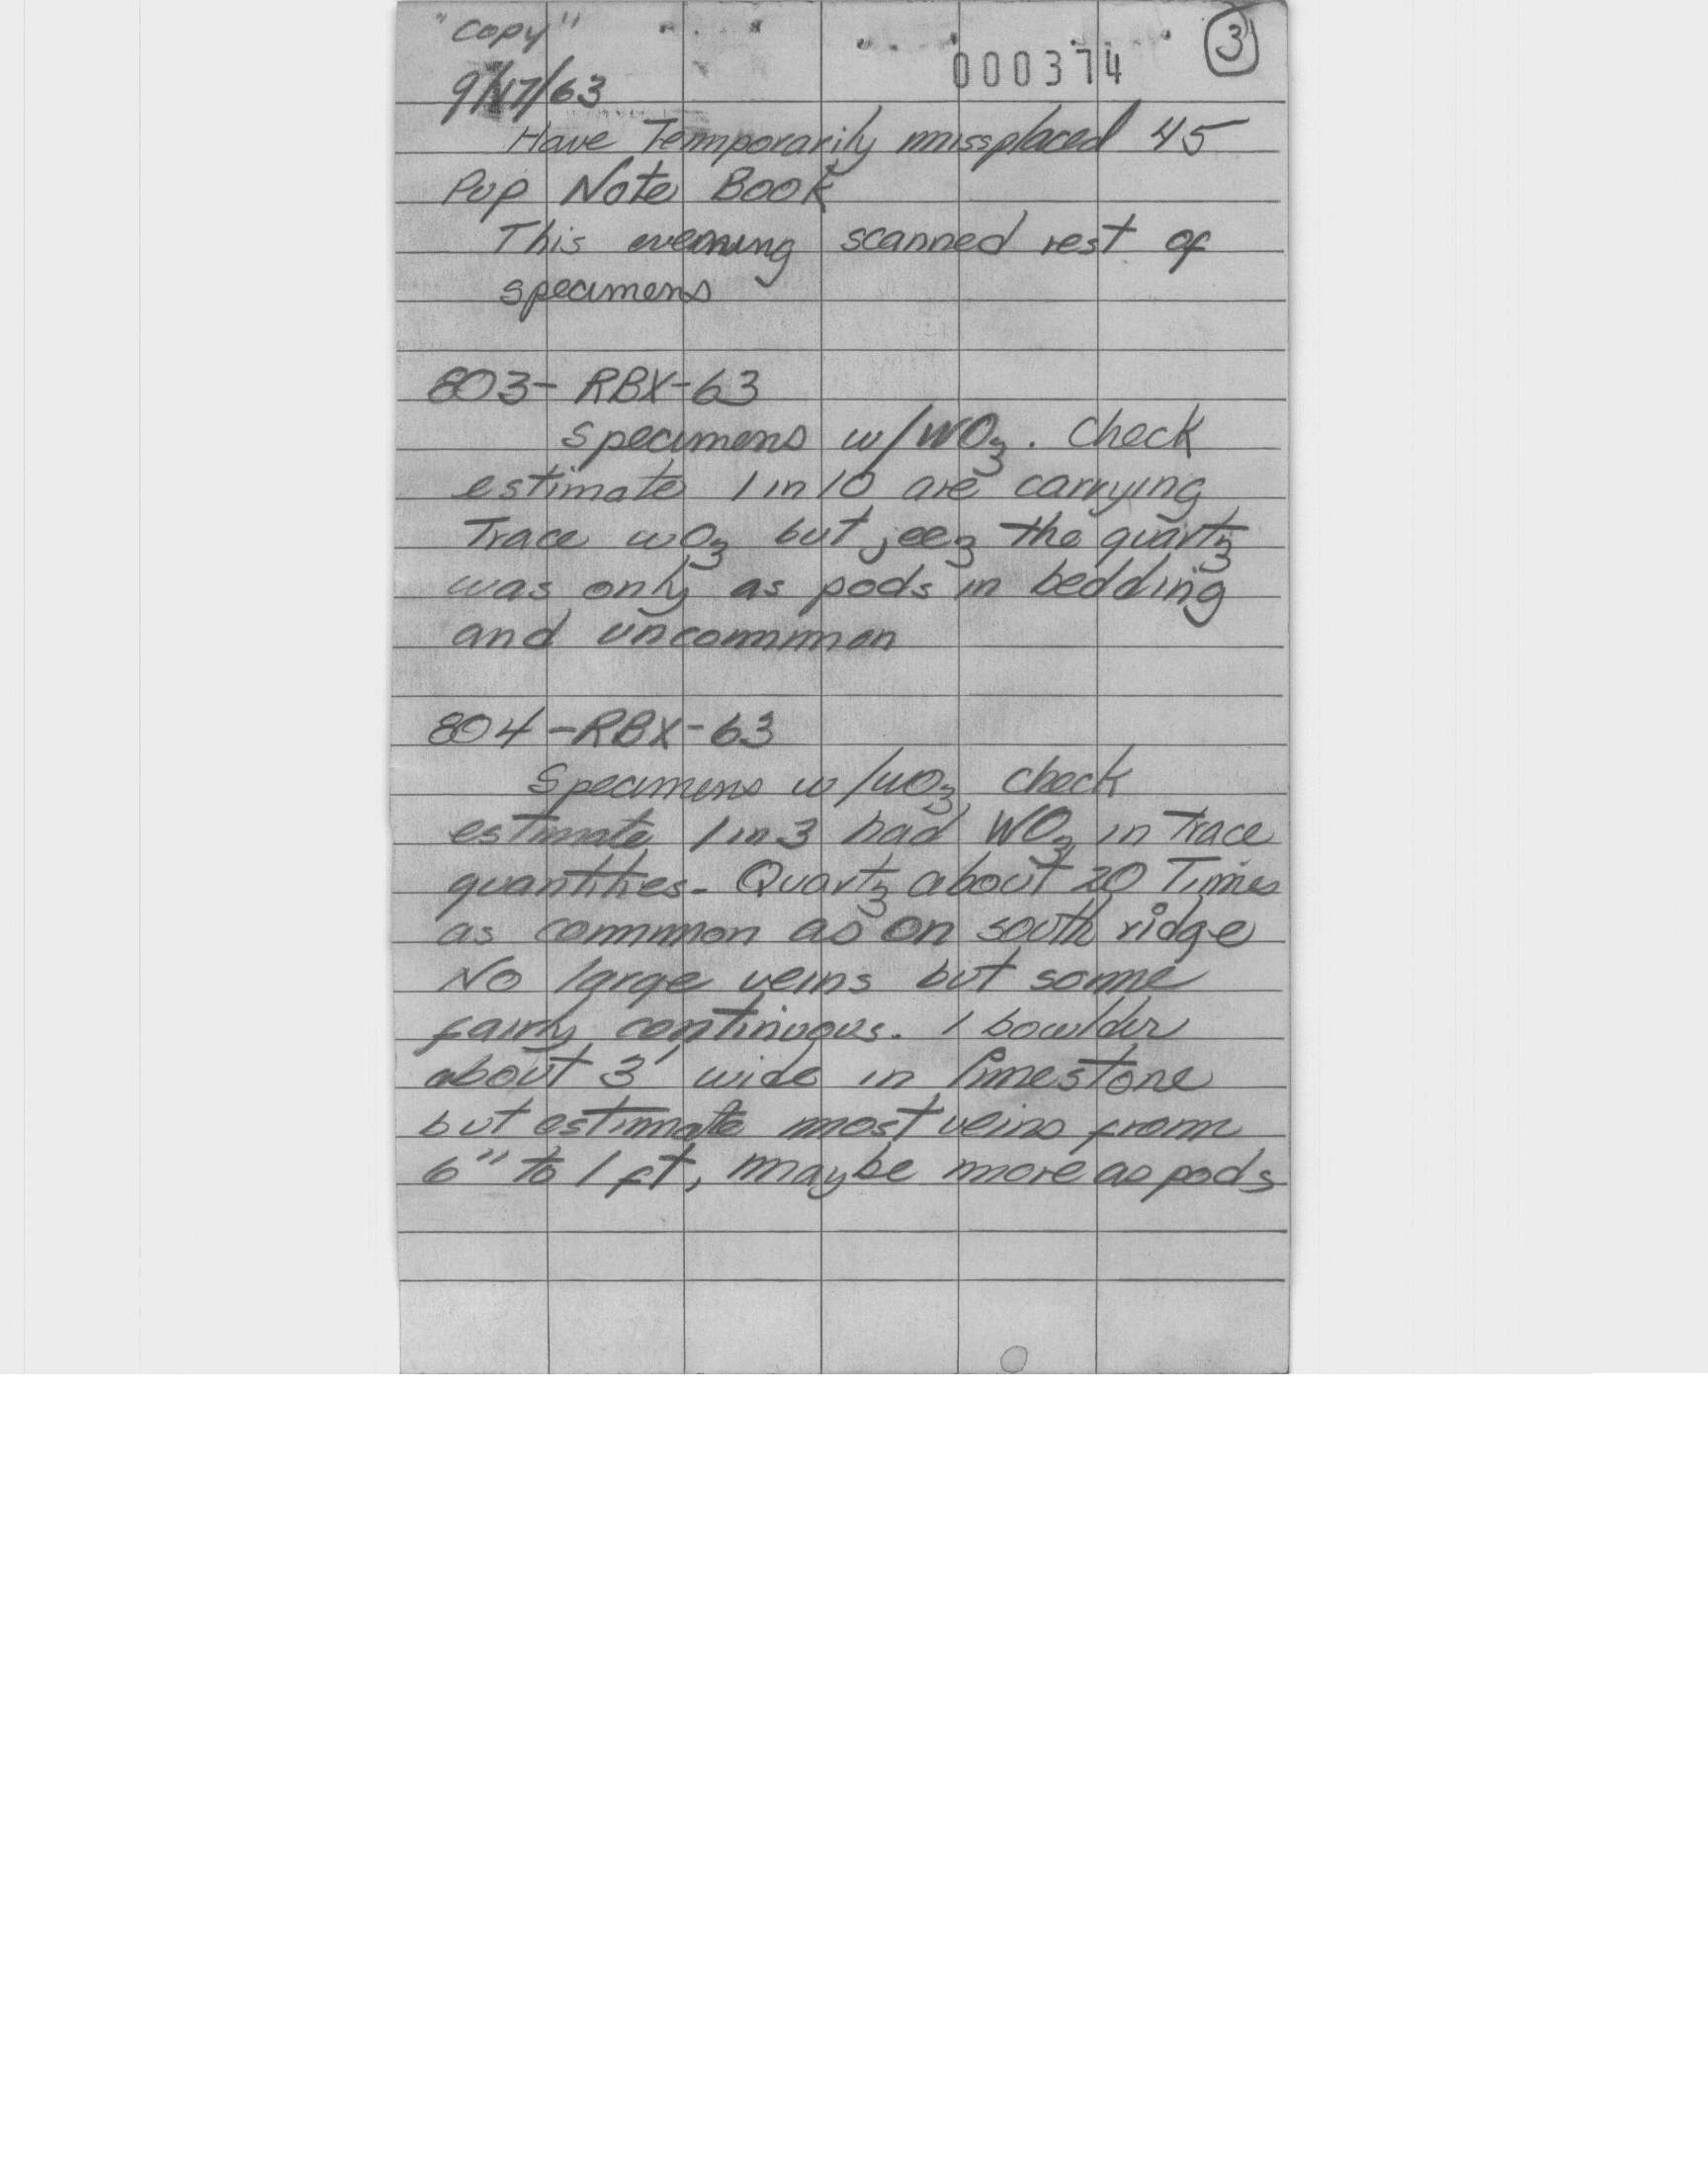 "Copy"
000374
3
9/17/63
Have Temporarily missplaced 45
Pup Note Book
This evening scanned rest of
specimens
803-RBX-63
Specimens w/WO3. Check
estimate 1 in 10 are carrying
Trace WO3 but jeez the quartz
was only as pods in bedding
and uncommon
804-RBX-63
Specimens w/WO3 check
estimate 1 in 3 had WO3 in Trace
quantities- Quartz about 20 Times
as common as on south ridge
No large veins but some
fairly continuous. 1 boulder
about 3' wide in limestone
but estimate most veins from
6" to 1 ft, maybe more as pods